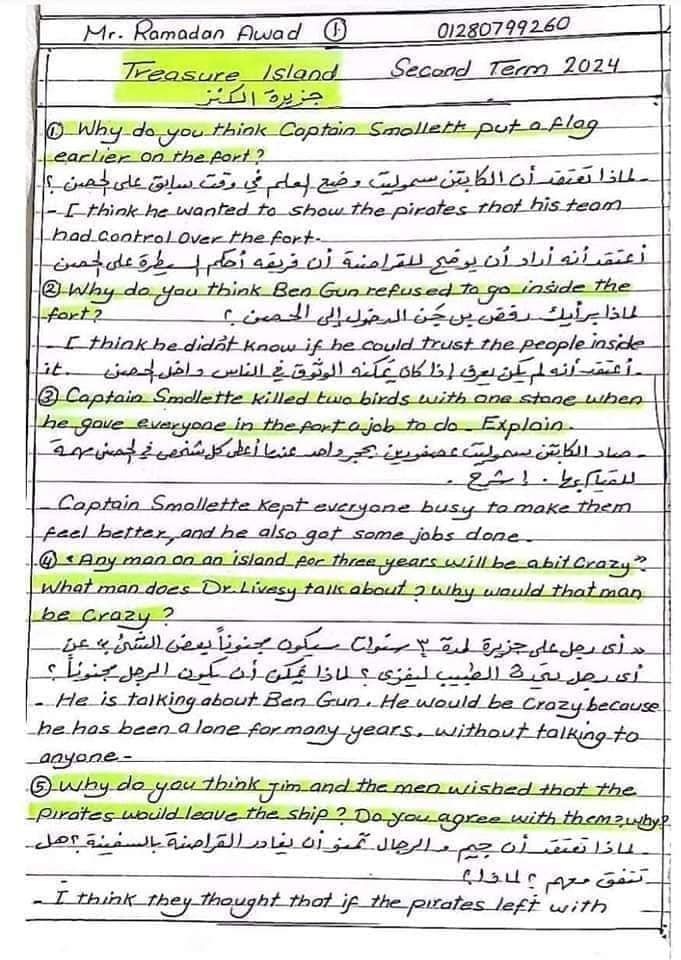 Mr. Ramadan Awad ① 01280799260
Treasure Island Second Term 2024
جزيرة الكنز
① Why do you think Captain Smollett put a flag
earlier on the fort?
- لماذا تعتقد أن الكابتن سموليت وضع العلم في وقت سابق على الحصن ؟
- I think he wanted to show the pirates that his team
had control over the fort.
أعتقد أنه أراد أن يوضح للقراصنة أن فريقه أحكم السيطرة على الحصن
② Why do you think Ben Gun refused to go inside the
fort? لماذا برأيك رفض بن جن الدخول إلى الحصن ؟
- I think he didn't know if he could trust the people inside
it. - أعتقد أنه لم يكن يعرف إذا كان يمكنه الوثوق في الناس داخل الحصن
③ Captain Smollette killed two birds with one stone when
he gave everyone in the fort a job to do. Explain.
- صاد الكابتن سموليت عصفورين بحجر واحد عندما أعطى كل شخص في الحصن مهمة
للقيام بها . اشرح .
- Captain Smollette kept everyone busy to make them
feel better, and he also got some jobs done.
④ "Any man on an island for three years will be a bit crazy"
What man does Dr. Livesy talk about? Why would that man
be crazy?
" أى رجل على جزيرة لمدة ٣ سنوات سيكون مجنوناً بعض الشئ " عن
أى رجل يتحدث الطبيب ليفزى ؟ لماذا يمكن أن يكون الرجل مجنوناً ؟
- He is talking about Ben Gun. He would be crazy because
he has been alone for many years, without talking to
anyone.-
⑤ Why do you think Jim and the men wished that the
pirates would leave the ship? Do you agree with them? why?
- لماذا تعتقد أن جيم و الرجال تمنو أن يغادر القراصنة بالسفينة ؟ هل
تتفق معهم ؟ لماذا ؟
- I think they thought that if the pirates left with